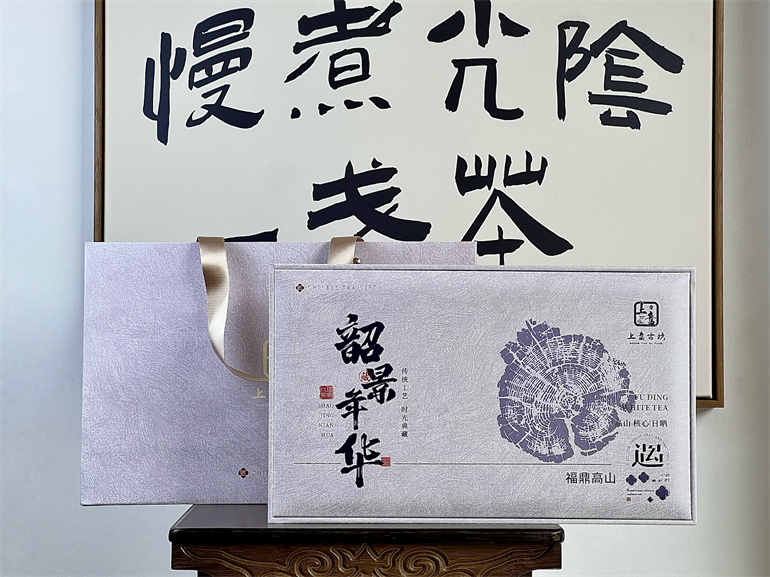 慢煮光陰
一戔茶
CHINESE TEA GIFT
上壹古坊
韶景年华
藏
传统工艺 时光典藏
SHAO
JING
NIAN
HUA
FU DING
WHITE TEA
高山|核心|日晒
福鼎高山